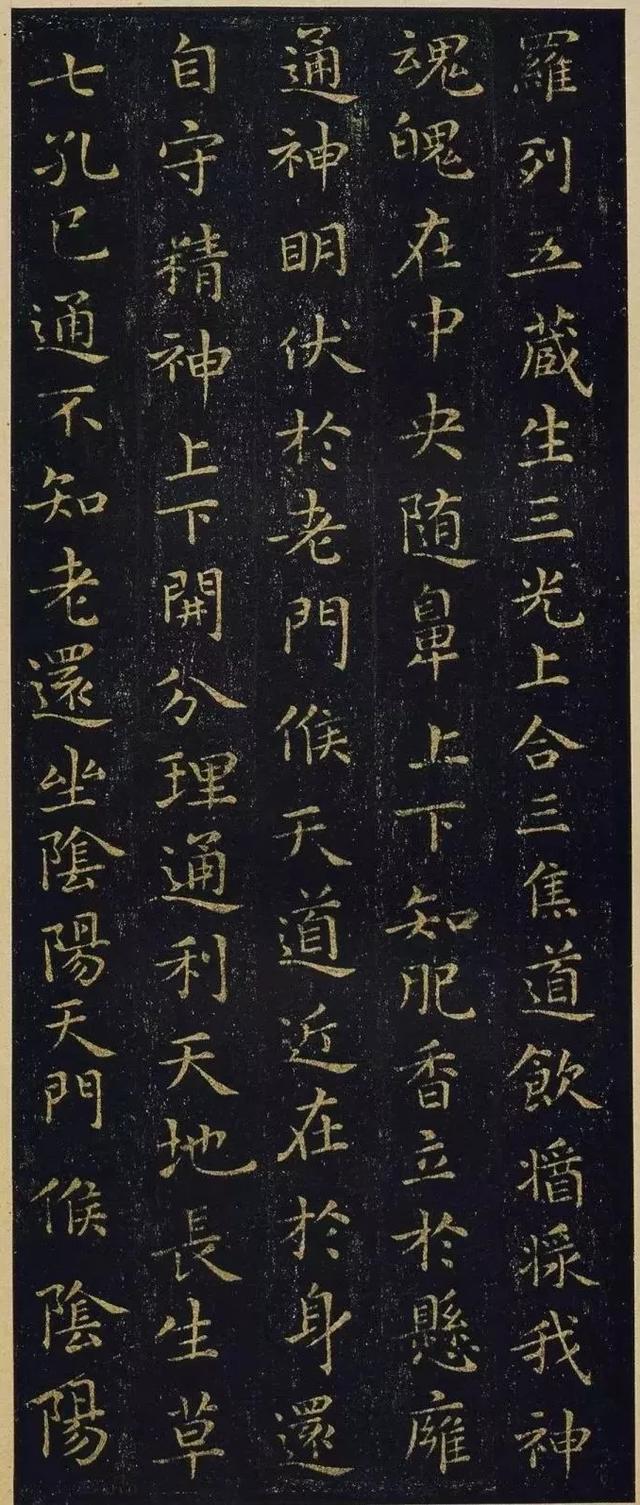 羅列五藏生三光上合三焦道飲醬漿我神
魂魄在中央随鼻上下知肥香立於懸癰
通神明伏於老門候天道近在於身還
自守精神上下開分理通利天地長生草
七孔已通不知老還坐陰陽天門候陰陽